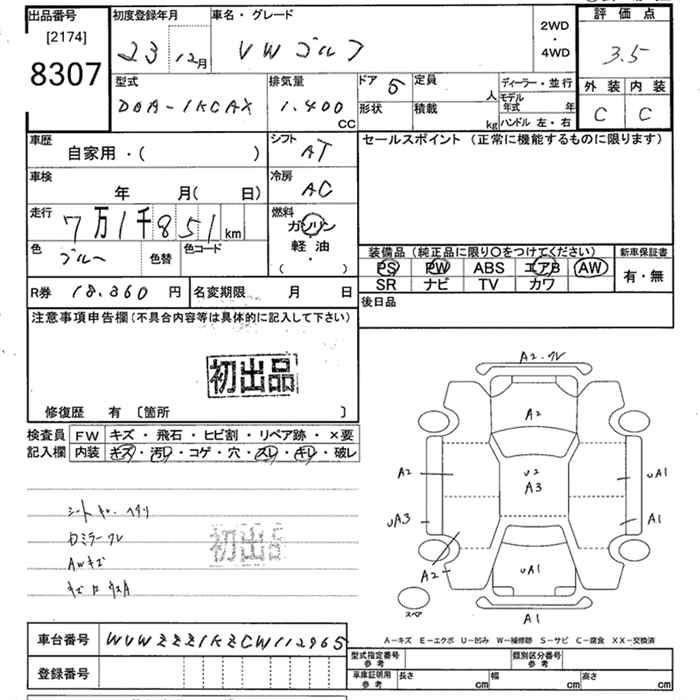 出品番号 初度登録年月 車名・グレード 2WD・4WD 評価点
[2174] 8307 23 12月 VW ゴルフ 3.5
型式 排気量 ドア 5 定員 人 ディーラー・並行 外装 内装
DBA-1KCAX 1.400 CC 形状 積載 kg モデル年式 年 ハンドル 左・右 C C
車歴 シフト セールスポイント(正常に機能するものに限ります)
自家用・( ) AT
車検 冷房
年 月( 日) AC
走行 7万1千851km 燃料 ガソリン
色 ブルー 色替 色コード 軽油 ・( )
装備品(純正品に限り○をつけてください) 新車保証書
PS PW ABS エアB AW 有・無
SR ナビ TV カワ
R券 18.360 円 名変期限 月 日 後日品
注意事項申告欄(不具合内容等は具体的に記入して下さい)
初出品
修復歴 有 〔箇所 〕
検査員 FW キズ・飛石・ヒビ割・リペア跡・×要
記入欄 内装 キズ・汚レ・コゲ・穴・スレ・キレ・破レ
A2.クレ
A2
A2 U2 A3 UA1
UA3 A1
A2 UA1
A1
スペア
シートキャー ヘタリ
Dミラークレ
AWキズ
初出品
A-キズ E-エクボ U-凹み W-補修跡 S-サビ C-腐食 XX-交換済
車台番号 WVWZZZ1KZCW112965
型式指定番号 参考 類別区分番号 参考
登録番号 車庫証明用 参考 長さ cm 幅 cm 高さ cm